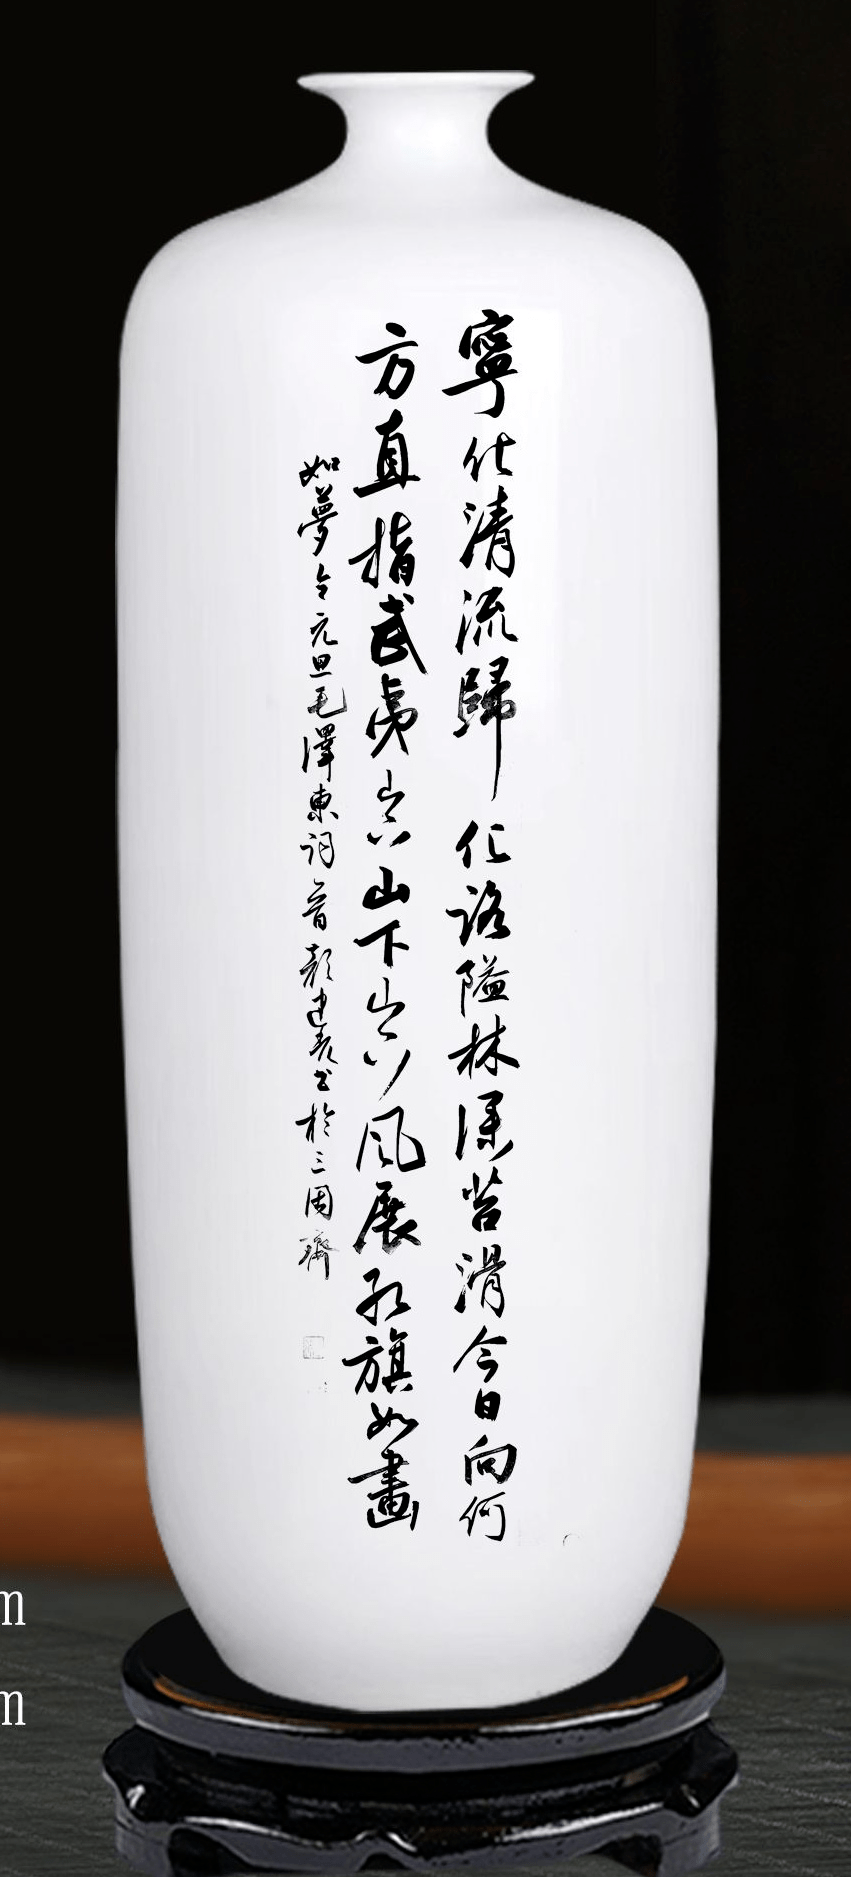 寧化清流歸化路隘林深苔滑今日向何
方直指武夷山下山下山下风展紅旗如畫
如夢令元旦毛澤東詞一首彭建书於三周齋
m
m